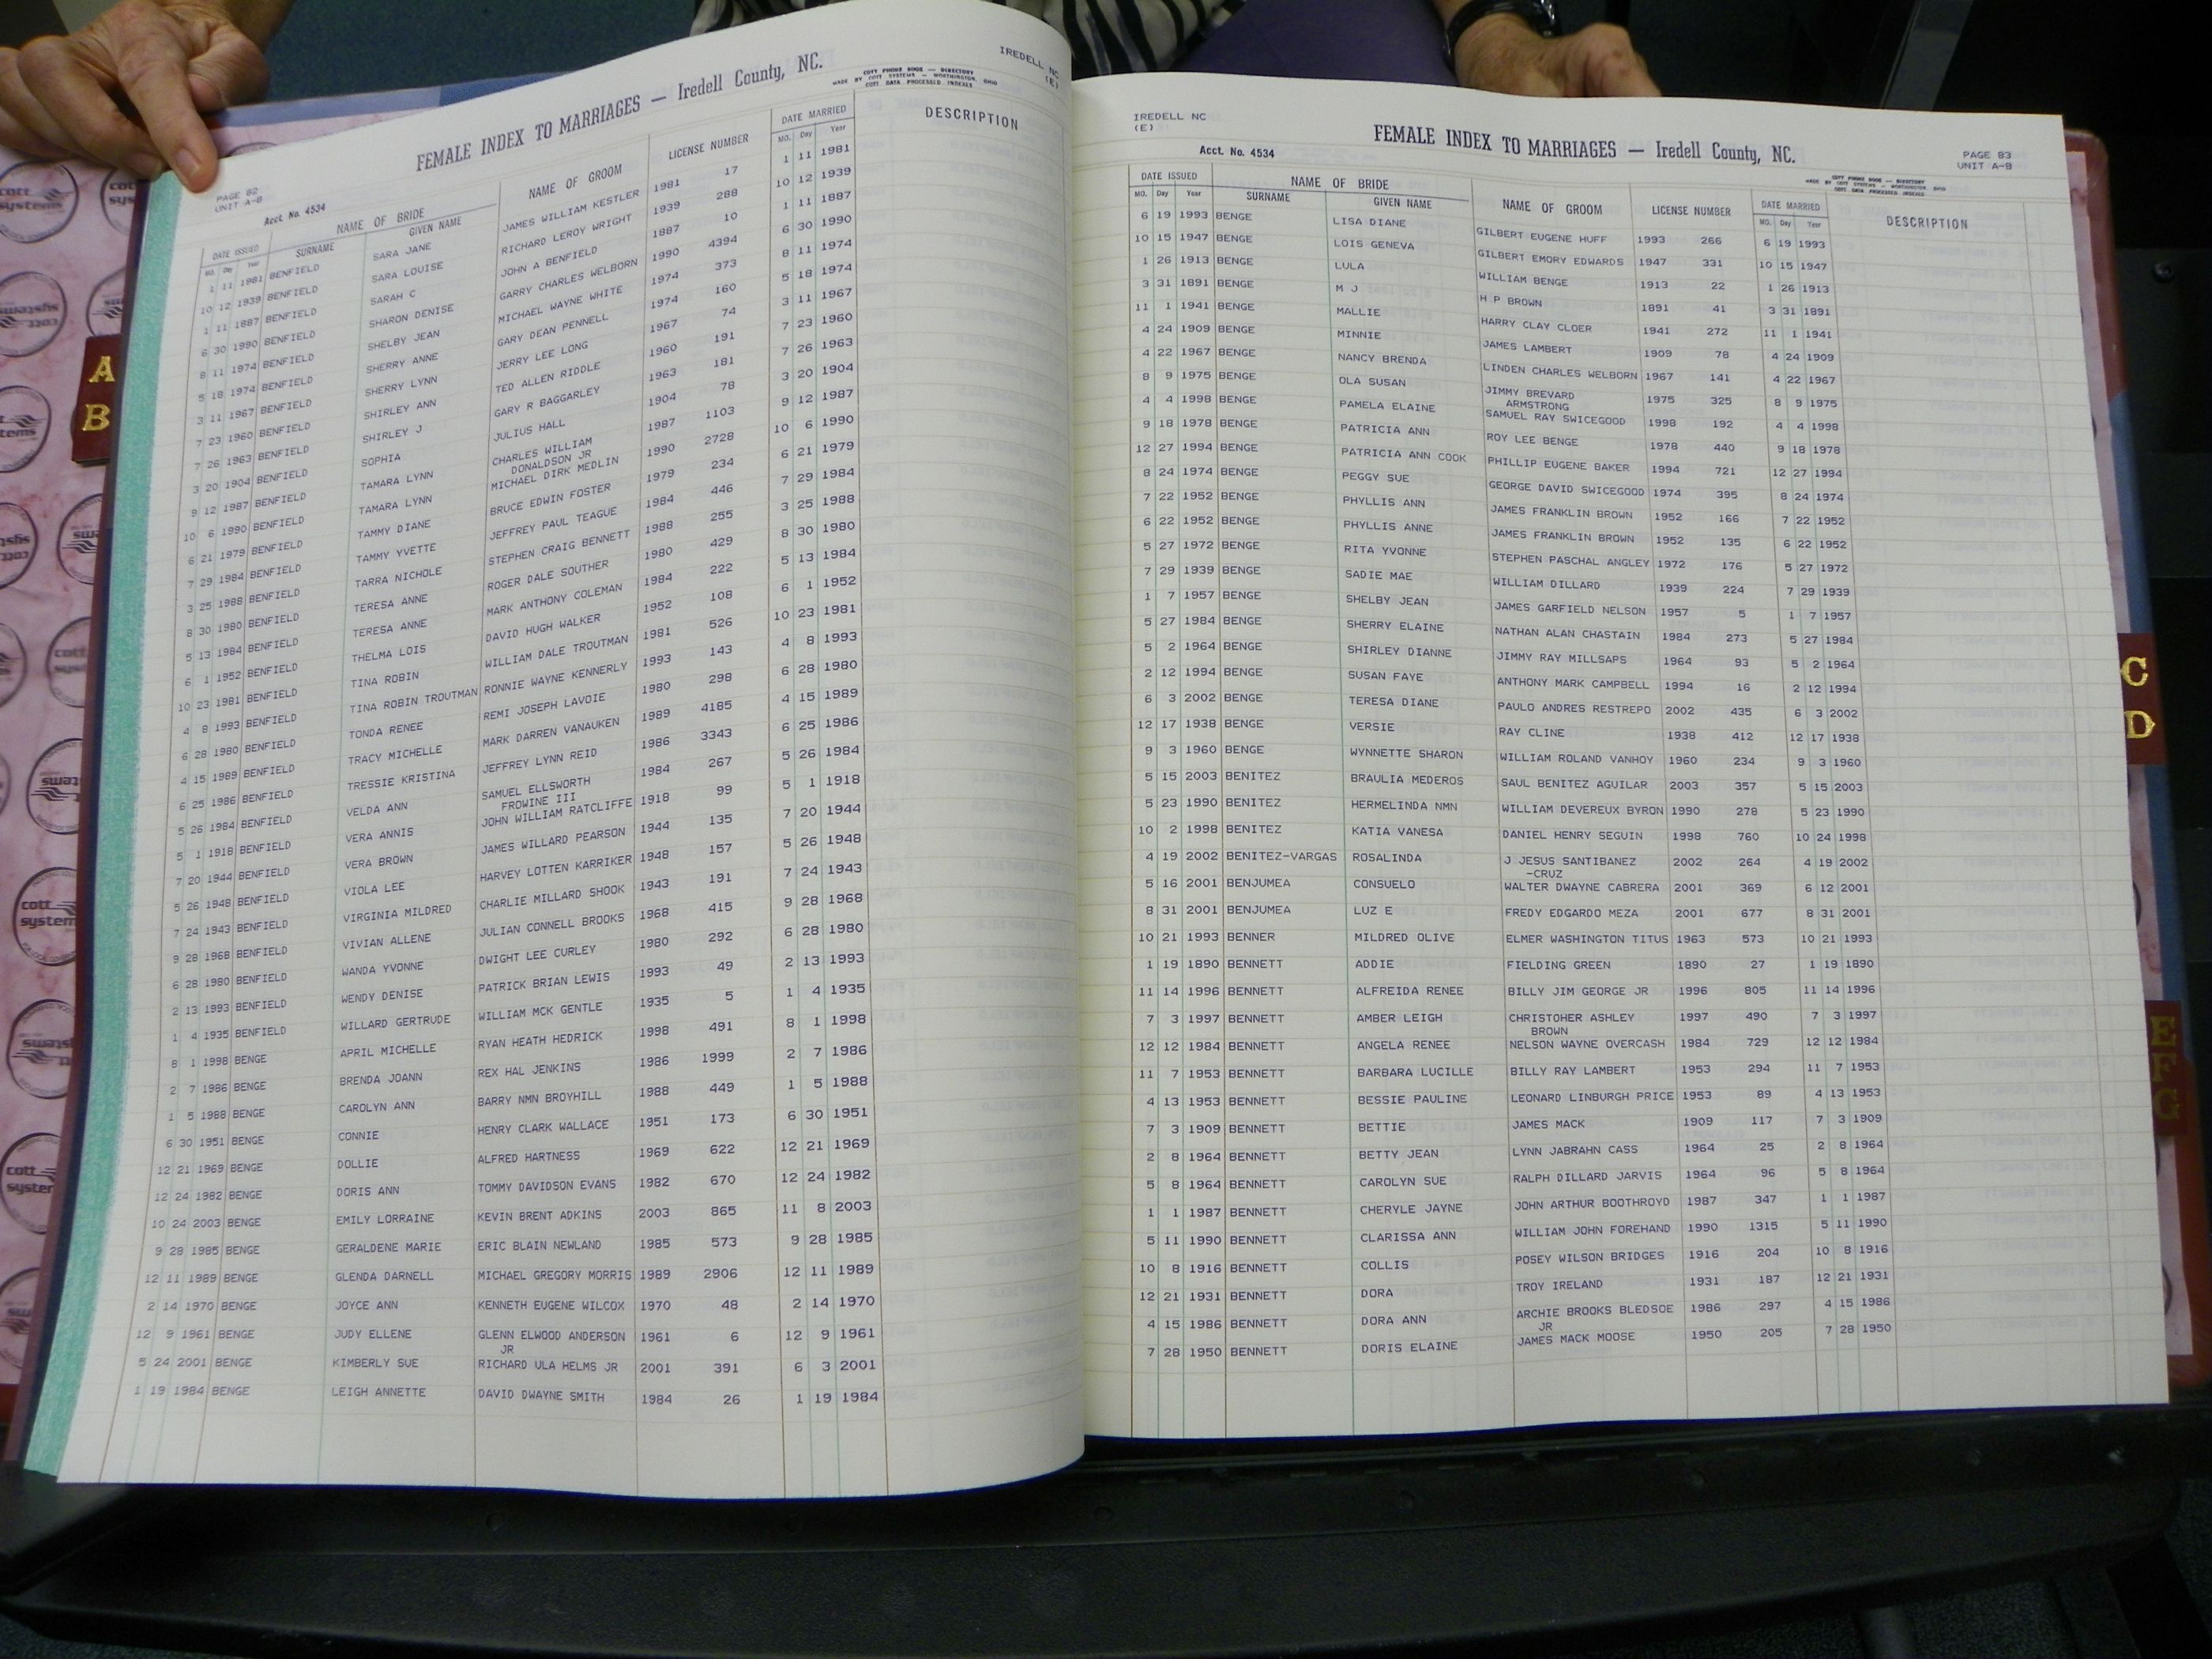 IREDELL NC
(E)
COTT PHONE BOOK — DIRECTORY
MADE BY COTT SYSTEMS — WORTHINGTON, OHIO
COTT DATA PROCESSED INDEXES
FEMALE INDEX TO MARRIAGES — Iredell County, NC.
PAGE 82
UNIT A-B
Acct. No. 4534
DATE ISSUED NAME OF BRIDE NAME OF GROOM LICENSE NUMBER DATE MARRIED DESCRIPTION
MO. Day Year SURNAME GIVEN NAME MO. Day Year
1 11 1981 BENFIELD SARA JANE JAMES WILLIAM KESTLER 1981 17 1 11 1981
10 12 1939 BENFIELD SARA LOUISE RICHARD LEROY WRIGHT 1939 288 10 12 1939
1 11 1887 BENFIELD SARAH C JOHN A BENFIELD 1887 10 1 11 1887
6 30 1990 BENFIELD SHARON DENISE GARRY CHARLES WELBORN 1990 4394 6 30 1990
8 11 1974 BENFIELD SHELBY JEAN MICHAEL WAYNE WHITE 1974 373 8 11 1974
5 18 1974 BENFIELD SHERRY ANNE GARY DEAN PENNELL 1974 160 5 18 1974
3 11 1967 BENFIELD SHERRY LYNN JERRY LEE LONG 1967 74 3 11 1967
7 23 1960 BENFIELD SHIRLEY ANN TED ALLEN RIDDLE 1960 191 7 23 1960
7 26 1963 BENFIELD SHIRLEY J GARY R BAGGARLEY 1963 181 7 26 1963
3 20 1904 BENFIELD SOPHIA JULIUS HALL 1904 78 3 20 1904
9 12 1987 BENFIELD TAMARA LYNN CHARLES WILLIAM 1987 1103 9 12 1987
DONALDSON JR
10 6 1990 BENFIELD TAMARA LYNN MICHAEL DIRK MEDLIN 1990 2728 10 6 1990
6 21 1979 BENFIELD TAMMY DIANE BRUCE EDWIN FOSTER 1979 234 6 21 1979
7 29 1984 BENFIELD TAMMY YVETTE JEFFREY PAUL TEAGUE 1984 446 7 29 1984
3 25 1988 BENFIELD TARRA NICHOLE STEPHEN CRAIG BENNETT 1988 255 3 25 1988
8 30 1980 BENFIELD TERESA ANNE ROGER DALE SOUTHER 1980 429 8 30 1980
5 13 1984 BENFIELD TERESA ANNE MARK ANTHONY COLEMAN 1984 222 5 13 1984
6 1 1952 BENFIELD THELMA LOIS DAVID HUGH WALKER 1952 108 6 1 1952
10 23 1981 BENFIELD TINA ROBIN WILLIAM DALE TROUTMAN 1981 526 10 23 1981
4 8 1993 BENFIELD TINA ROBIN TROUTMAN RONNIE WAYNE KENNERLY 1993 143 4 8 1993
6 28 1980 BENFIELD TONDA RENEE REMI JOSEPH LAVOIE 1980 298 6 28 1980
4 15 1989 BENFIELD TRACY MICHELLE MARK DARREN VANAUKEN 1989 4185 4 15 1989
6 25 1986 BENFIELD TRESSIE KRISTINA JEFFREY LYNN REID 1986 3343 6 25 1986
5 26 1984 BENFIELD VELDA ANN SAMUEL ELLSWORTH 1984 267 5 26 1984
FROWINE III
5 1 1918 BENFIELD VERA ANNIS JOHN WILLIAM RATCLIFFE 1918 99 5 1 1918
7 20 1944 BENFIELD VERA BROWN JAMES WILLARD PEARSON 1944 135 7 20 1944
5 26 1948 BENFIELD VIOLA LEE HARVEY LOTTEN KARRIKER 1948 157 5 26 1948
7 24 1943 BENFIELD VIRGINIA MILDRED CHARLIE MILLARD SHOOK 1943 191 7 24 1943
9 28 1968 BENFIELD VIVIAN ALLENE JULIAN CONNELL BROOKS 1968 415 9 28 1968
6 28 1980 BENFIELD WANDA YVONNE DWIGHT LEE CURLEY 1980 292 6 28 1980
2 13 1993 BENFIELD WENDY DENISE PATRICK BRIAN LEWIS 1993 49 2 13 1993
1 4 1935 BENFIELD WILLARD GERTRUDE WILLIAM MCK GENTLE 1935 5 1 4 1935
8 1 1998 BENGE APRIL MICHELLE RYAN HEATH HEDRICK 1998 491 8 1 1998
2 7 1986 BENGE BRENDA JOANN REX HAL JENKINS 1986 1999 2 7 1986
1 5 1988 BENGE CAROLYN ANN BARRY NMN BROYHILL 1988 449 1 5 1988
6 30 1951 BENGE CONNIE HENRY CLARK WALLACE 1951 173 6 30 1951
12 21 1969 BENGE DOLLIE ALFRED HARTNESS 1969 622 12 21 1969
12 24 1982 BENGE DORIS ANN TOMMY DAVIDSON EVANS 1982 670 12 24 1982
10 24 2003 BENGE EMILY LORRAINE KEVIN BRENT ADKINS 2003 865 11 8 2003
9 28 1985 BENGE GERALDENE MARIE ERIC BLAIN NEWLAND 1985 573 9 28 1985
12 11 1989 BENGE GLENDA DARNELL MICHAEL GREGORY MORRIS 1989 2906 12 11 1989
2 14 1970 BENGE JOYCE ANN KENNETH EUGENE WILCOX 1970 48 2 14 1970
12 9 1961 BENGE JUDY ELLENE GLENN ELWOOD ANDERSON 1961 6 12 9 1961
JR
5 24 2001 BENGE KIMBERLY SUE RICHARD ULA HELMS JR 2001 391 6 3 2001
1 19 1984 BENGE LEIGH ANNETTE DAVID DWAYNE SMITH 1984 26 1 19 1984
IREDELL NC
(E)
FEMALE INDEX TO MARRIAGES — Iredell County, NC.
Acct. No. 4534
PAGE 83
UNIT A-B
COTT PHONE BOOK — DIRECTORY
MADE BY COTT SYSTEMS — WORTHINGTON, OHIO
COTT DATA PROCESSED INDEXES
DATE ISSUED NAME OF BRIDE NAME OF GROOM LICENSE NUMBER DATE MARRIED DESCRIPTION
MO. Day Year SURNAME GIVEN NAME MO. Day Year
6 19 1993 BENGE LISA DIANE GILBERT EUGENE HUFF 1993 266 6 19 1993
10 15 1947 BENGE LOIS GENEVA GILBERT EMORY EDWARDS 1947 331 10 15 1947
1 26 1913 BENGE LULA WILLIAM BENGE 1913 22 1 26 1913
3 31 1891 BENGE M J H P BROWN 1891 41 3 31 1891
11 1 1941 BENGE MALLIE HARRY CLAY CLOER 1941 272 11 1 1941
4 24 1909 BENGE MINNIE JAMES LAMBERT 1909 78 4 24 1909
4 22 1967 BENGE NANCY BRENDA LINDEN CHARLES WELBORN 1967 141 4 22 1967
8 9 1975 BENGE OLA SUSAN JIMMY BREVARD 1975 325 8 9 1975
ARMSTRONG
4 4 1998 BENGE PAMELA ELAINE SAMUEL RAY SWICEGOOD 1998 192 4 4 1998
9 18 1978 BENGE PATRICIA ANN ROY LEE BENGE 1978 440 9 18 1978
12 27 1994 BENGE PATRICIA ANN COOK PHILLIP EUGENE BAKER 1994 721 12 27 1994
8 24 1974 BENGE PEGGY SUE GEORGE DAVID SWICEGOOD 1974 395 8 24 1974
7 22 1952 BENGE PHYLLIS ANN JAMES FRANKLIN BROWN 1952 166 7 22 1952
6 22 1952 BENGE PHYLLIS ANNE JAMES FRANKLIN BROWN 1952 135 6 22 1952
5 27 1972 BENGE RITA YVONNE STEPHEN PASCHAL ANGLEY 1972 176 5 27 1972
7 29 1939 BENGE SADIE MAE WILLIAM DILLARD 1939 224 7 29 1939
1 7 1957 BENGE SHELBY JEAN JAMES GARFIELD NELSON 1957 5 1 7 1957
5 27 1984 BENGE SHERRY ELAINE NATHAN ALAN CHASTAIN 1984 273 5 27 1984
5 2 1964 BENGE SHIRLEY DIANNE JIMMY RAY MILLSAPS 1964 93 5 2 1964
2 12 1994 BENGE SUSAN FAYE ANTHONY MARK CAMPBELL 1994 16 2 12 1994
6 3 2002 BENGE TERESA DIANE PAULO ANDRES RESTREPO 2002 435 6 3 2002
12 17 1938 BENGE VERSIE RAY CLINE 1938 412 12 17 1938
9 3 1960 BENGE WYNNETTE SHARON WILLIAM ROLAND VANHOY 1960 234 9 3 1960
5 15 2003 BENITEZ BRAULIA MEDEROS SAUL BENITEZ AGUILAR 2003 357 5 15 2003
5 23 1990 BENITEZ HERMELINDA NMN WILLIAM DEVEREUX BYRON 1990 278 5 23 1990
10 2 1998 BENITEZ KATIA VANESA DANIEL HENRY SEGUIN 1998 760 10 24 1998
4 19 2002 BENITEZ-VARGAS ROSALINDA J JESUS SANTIBANEZ 2002 264 4 19 2002
-CRUZ
5 16 2001 BENJUMEA CONSUELO WALTER DWAYNE CABRERA 2001 369 6 12 2001
8 31 2001 BENJUMEA LUZ E FREDY EDGARDO MEZA 2001 677 8 31 2001
10 21 1993 BENNER MILDRED OLIVE ELMER WASHINGTON TITUS 1963 573 10 21 1993
1 19 1890 BENNETT ADDIE FIELDING GREEN 1890 27 1 19 1890
11 14 1996 BENNETT ALFREIDA RENEE BILLY JIM GEORGE JR 1996 805 11 14 1996
7 3 1997 BENNETT AMBER LEIGH CHRISTOHER ASHLEY 1997 490 7 3 1997
BROWN
12 12 1984 BENNETT ANGELA RENEE NELSON WAYNE OVERCASH 1984 729 12 12 1984
11 7 1953 BENNETT BARBARA LUCILLE BILLY RAY LAMBERT 1953 294 11 7 1953
4 13 1953 BENNETT BESSIE PAULINE LEONARD LINBURGH PRICE 1953 89 4 13 1953
7 3 1909 BENNETT BETTIE JAMES MACK 1909 117 7 3 1909
2 8 1964 BENNETT BETTY JEAN LYNN JABRAHN CASS 1964 25 2 8 1964
5 8 1964 BENNETT CAROLYN SUE RALPH DILLARD JARVIS 1964 96 5 8 1964
1 1 1987 BENNETT CHERYLE JAYNE JOHN ARTHUR BOOTHROYD 1987 347 1 1 1987
5 11 1990 BENNETT CLARISSA ANN WILLIAM JOHN FOREHAND 1990 1315 5 11 1990
10 8 1916 BENNETT COLLIS POSEY WILSON BRIDGES 1916 204 10 8 1916
12 21 1931 BENNETT DORA TROY IRELAND 1931 187 12 21 1931
4 15 1986 BENNETT DORA ANN ARCHIE BROOKS BLEDSOE 1986 297 4 15 1986
JR
7 28 1950 BENNETT DORIS ELAINE JAMES MACK MOOSE 1950 205 7 28 1950
A
B
C
D
E
F
G
cott
systems